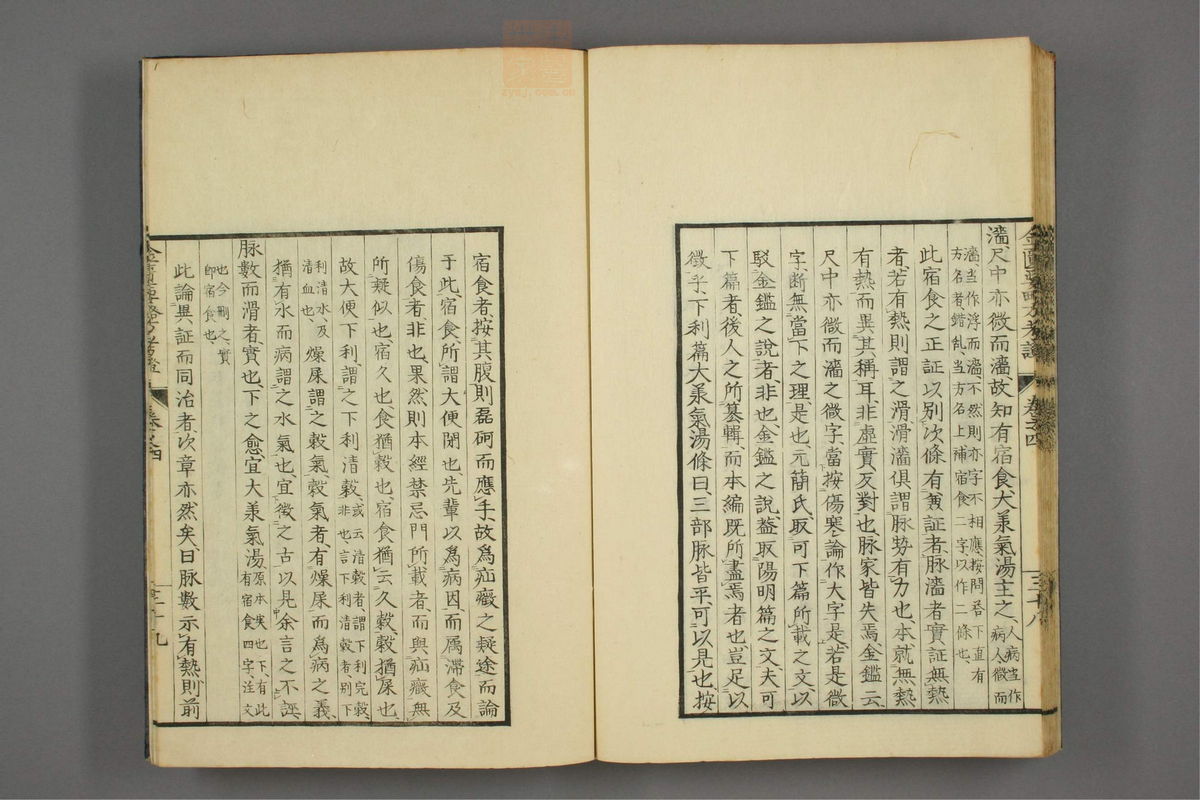 濇尺中亦微而濇故知有宿食大承氣湯主之人病当作病人微而
濇当作浮而濇不然則亦字不相應按問答下直有
方名者錯乱当方名上補宿食二字以作二條也
此宿食之正証以別次條有異証者脉濇者實証無熱
者若有熱則謂之滑滑濇俱謂脉势有力也本就無熱
有熱而異其稱耳非虚實反對也脉家皆失焉金鑑云
尺中亦微而濇之微字當按傷寒論作大字是若是微
字断無當下之理是也元簡氏取可下篇所載之文以
駁金鑑之說者非也金鑑之說葢取陽明篇之文夫可
下篇者後人之所纂輯而本編既所盡焉者也豈足以
徵乎下利篇大承氣湯條曰三部脉皆平可以見也按
卷之四
三十八
宿食者按其腹則磊砢而應手故爲疝癥之疑途而論
于此宿食所謂大便閉也先輩以爲病因而属滯食及
傷食者非也果然則本經禁忌門所載者而與疝癥無
所疑似也宿久也食猶穀也宿食猶云久穀穀猶屎也
故大便下利謂之下利清穀或云清穀者謂下利完穀
非也言下利清穀者別下
利清水及
清血也燥屎謂之穀氣穀氣者有燥屎而爲病之義
猶有水而病謂之水氣也宜徵之古以見余言之不誣
脉數而滑者實也下之愈宜大承氣湯原本実也下有此
有宿食四字注文
也今刪之實
即宿食也
此論異証而同治者次章亦然矣曰脉數示有熱則前
卷之四
三十九
zysj.com.cn